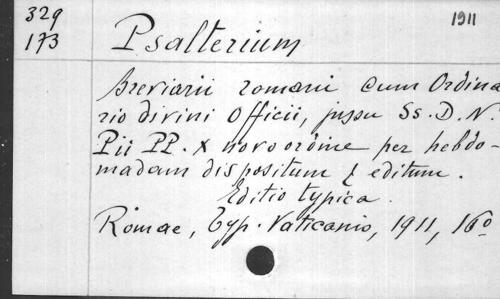 329
173
1911
Psalterium
Breviarii romani cum Ordina
rio divini Officii, jussu Ss. D. N.
Pii PP. X novo ordine per hebdo-
madam dispositum & editum.
Editio typica.
Romae, Typ. Vaticanis, 1911, 16º